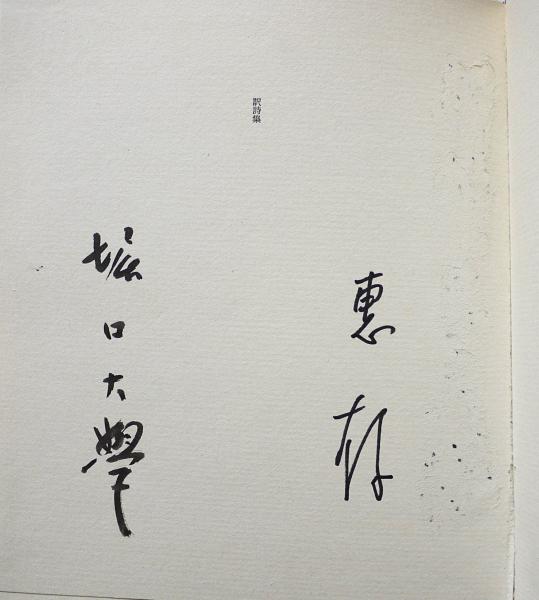 惠存
訳詩集
堀口大學